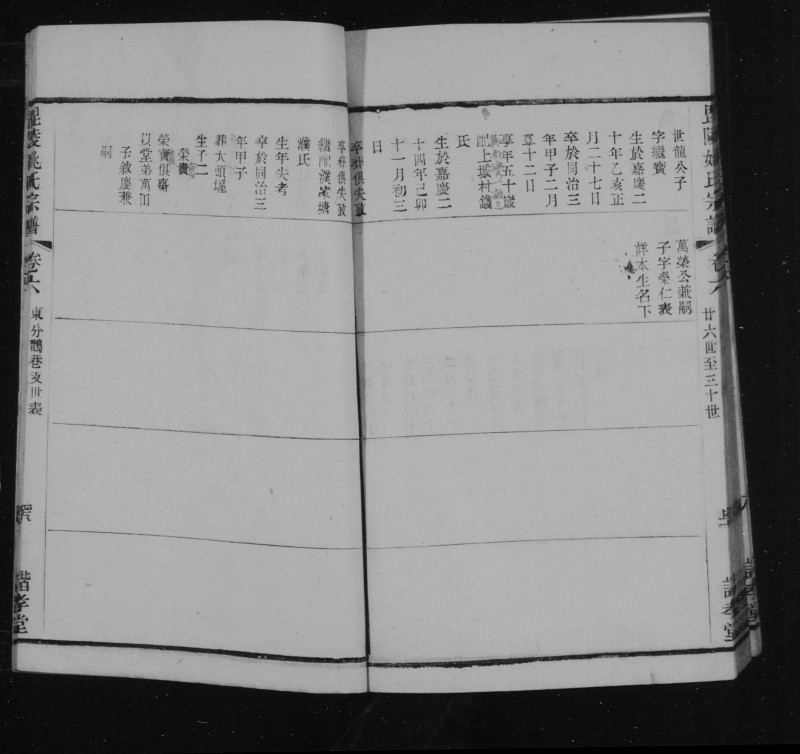 世龍公子
字繼寶
生於嘉慶二
十年乙亥正
月二十七日
卒於同治三
年甲子二月
十二日
享年五十歲
配上城村錢
氏
生於嘉慶二
十四年己卯
十一月初三
日
卒葬俱失攷
繼配濮家塘
濮氏
生年失考
卒於同治三
年甲子
葬大頭墥
生子二
榮貴
榮寶俱殤
以堂弟萬
子敘慶兼
嗣
萬榮公兼嗣
子字榮仁表
詳本生名下
毘陵姚氏宗譜
卷六
廿六世至三十世
毘陵姚氏宗譜
卷六
東分鸛巷支世表
諧孝堂